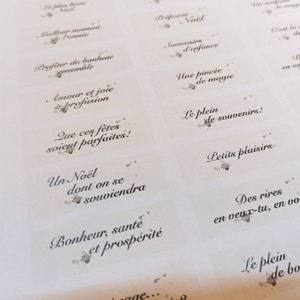 Le plus beau
Noël
Meilleur moment
de l'année
Profiter du bonheur
ensemble
Amour et joie
à profusion
Que ces fêtes
soient parfaites!
Un Noël
dont on se
souviendra
Bonheur, santé
et prospérité
Préparer
Noël
Souvenirs
d'enfance
Une pincée
de magie
Le plein
de souvenirs!
Petits plaisirs
Des rires
en veux-tu, en
Le plein
de
C'est la